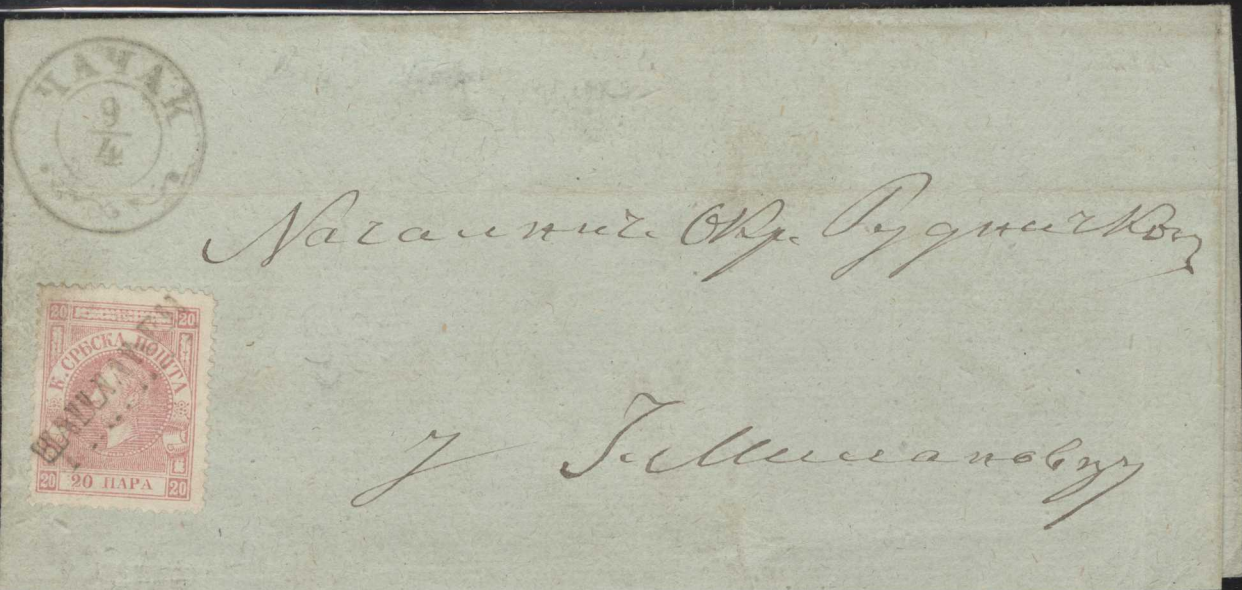 ЧАЧАК
9/4
Началнич. Окр. Рудничком
у Г. Милановцу
20 20
К. СРБСКА ПОШТА
НАПЛАЋЕНО
20 20 ПАРА 20